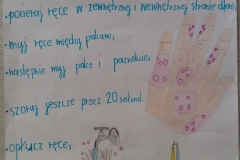 · pocieraj ręce w zewnętrznej i wewnętrznej stronie dłoni,
· myj ręce między palcami,
· następnie myj palce i paznokcie,
· szoruj jeszcze przez 20 sekund
· opłucz ręce,